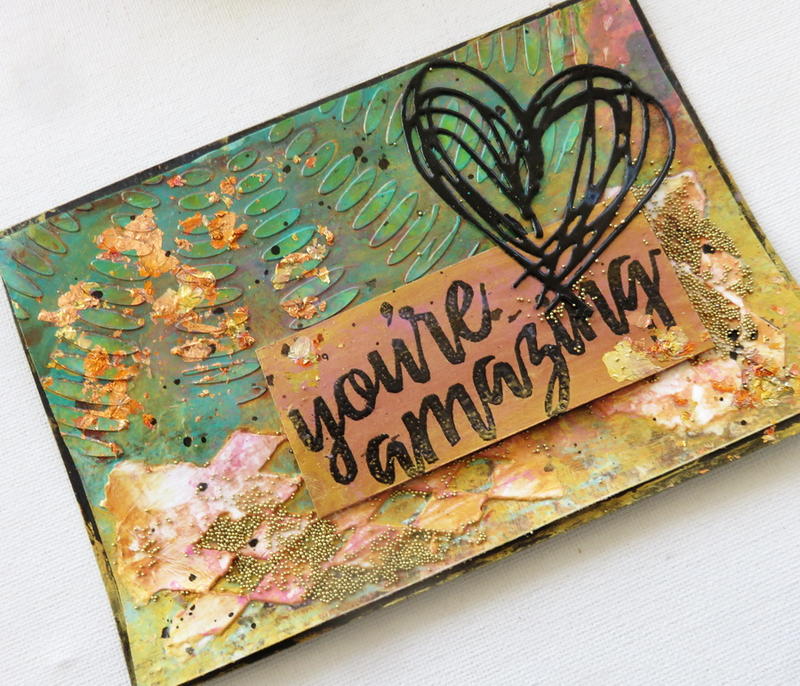 you're
amazing